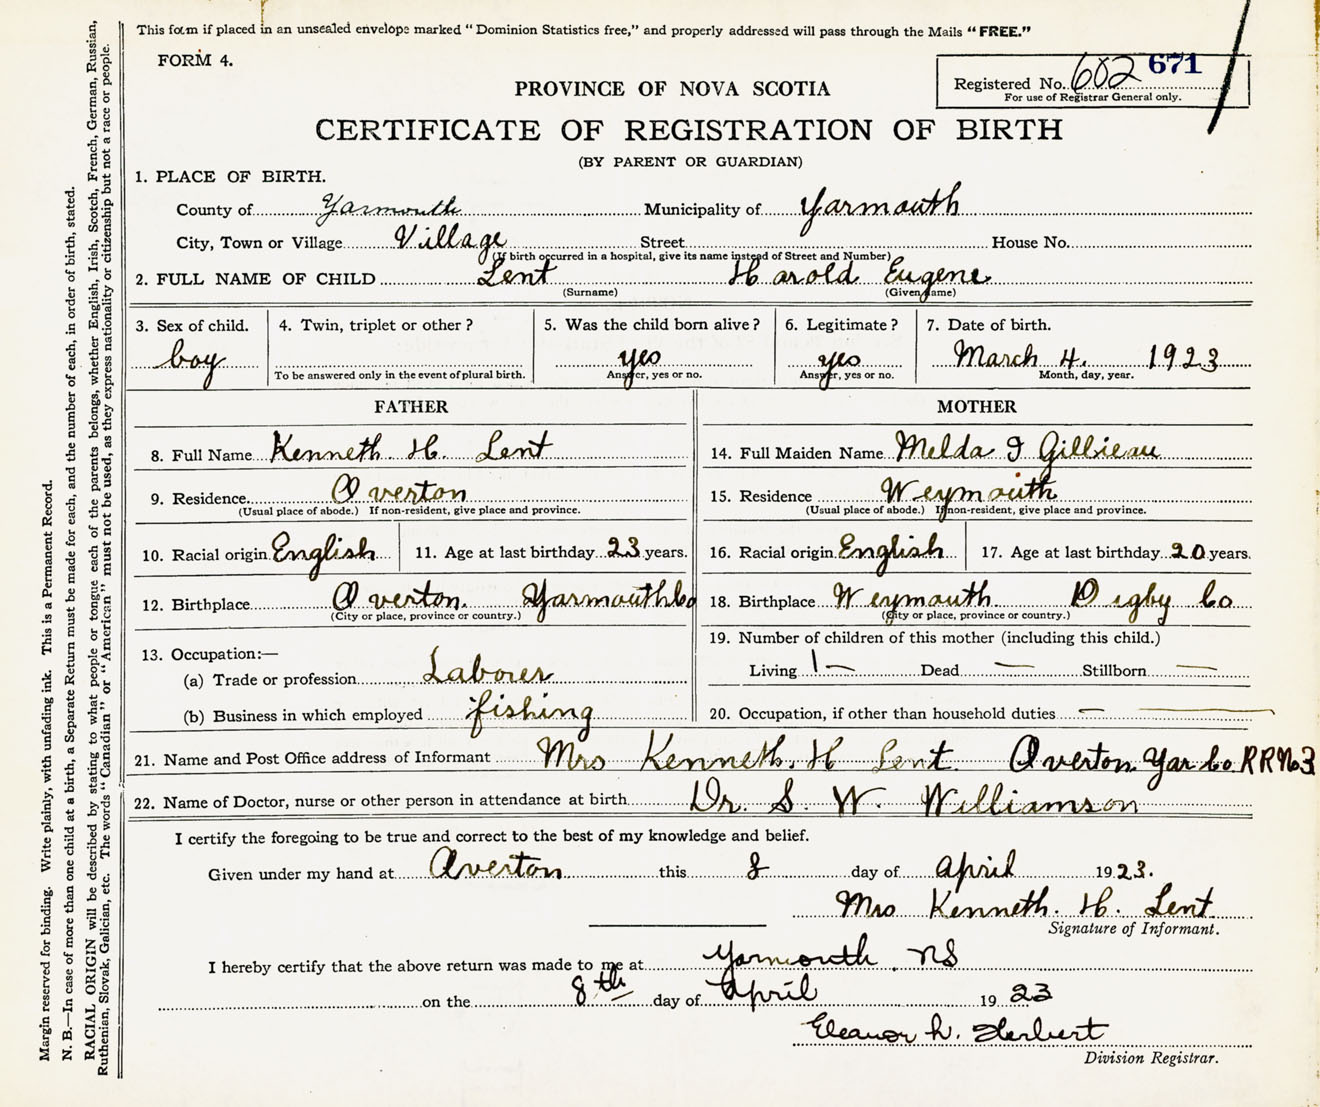 This form if placed in an unsealed envelope marked "Dominion Statistics free," and properly addressed will pass through the Mails "FREE."
FORM 4.
Registered No. 602 671
For use of Registrar General only.
PROVINCE OF NOVA SCOTIA
CERTIFICATE OF REGISTRATION OF BIRTH
(BY PARENT OR GUARDIAN)
1. PLACE OF BIRTH.
County of Yarmouth Municipality of Yarmouth
City, Town or Village Village Street House No.
(If birth occurred in a hospital, give its name instead of Street and Number)
2. FULL NAME OF CHILD Lent Harold Eugene
(Surname) (Given name)
3. Sex of child. 4. Twin, triplet or other? 5. Was the child born alive? 6. Legitimate? 7. Date of birth.
boy yes yes March 4. 1923
To be answered only in the event of plural birth. Answer, yes or no. Answer, yes or no. Month, day, year.
FATHER MOTHER
8. Full Name Kenneth H. Lent 14. Full Maiden Name Melda I Gillieau
9. Residence Overton 15. Residence Weymouth
(Usual place of abode.) If non-resident, give place and province. (Usual place of abode.) If non-resident, give place and province.
10. Racial origin English 11. Age at last birthday 23 years. 16. Racial origin English 17. Age at last birthday 20 years.
12. Birthplace Overton. Yarmouth Co 18. Birthplace Weymouth Digby Co
(City or place, province or country.) (City or place, province or country.)
13. Occupation:— 19. Number of children of this mother (including this child.)
(a) Trade or profession Laborer Living 1 — Dead — Stillborn —
(b) Business in which employed fishing 20. Occupation, if other than household duties —
21. Name and Post Office address of Informant Mrs Kenneth. H Lent Overton Yar Co RR No 3
22. Name of Doctor, nurse or other person in attendance at birth Dr. S. W. Williamson
I certify the foregoing to be true and correct to the best of my knowledge and belief.
Given under my hand at Overton this 8 day of April 1923.
Mrs Kenneth. H. Lent
Signature of Informant.
I hereby certify that the above return was made to me at Yarmouth NS
on the 8th day of April 1923
Eleanor L. Herbert
Division Registrar.
Margin reserved for binding. Write plainly, with unfading ink. This is a Permanent Record.
N. B.—In case of more than one child at a birth, a Separate Return must be made for each, and the number of each, in order of birth, stated.
RACIAL ORIGIN will be described by stating to what people or tongue each of the parents belongs, whether English, Irish, Scotch, French, German, Russian,
Ruthenian, Slovak, Galician, etc. The words "Canadian" or "American" must not be used, as they express nationality or citizenship but not a race or people.